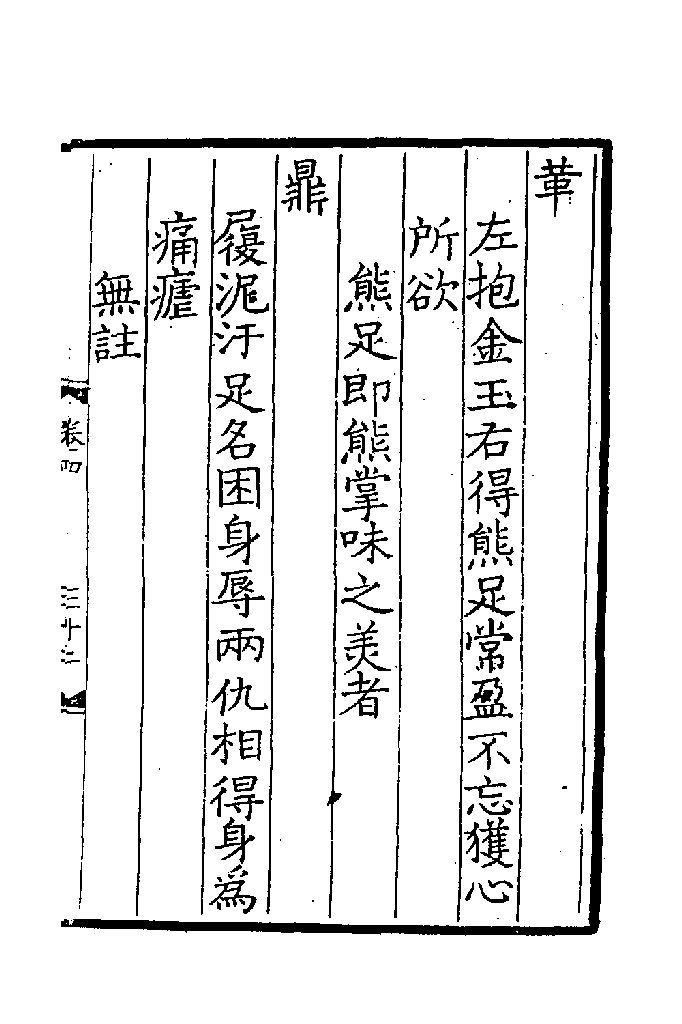 革
左抱金玉右得熊足常盈不忘獲心
所欲
熊足即熊掌味之美者
鼎
履泥汙足名困身辱兩仇相得身爲
痛瘧
無註
卷四